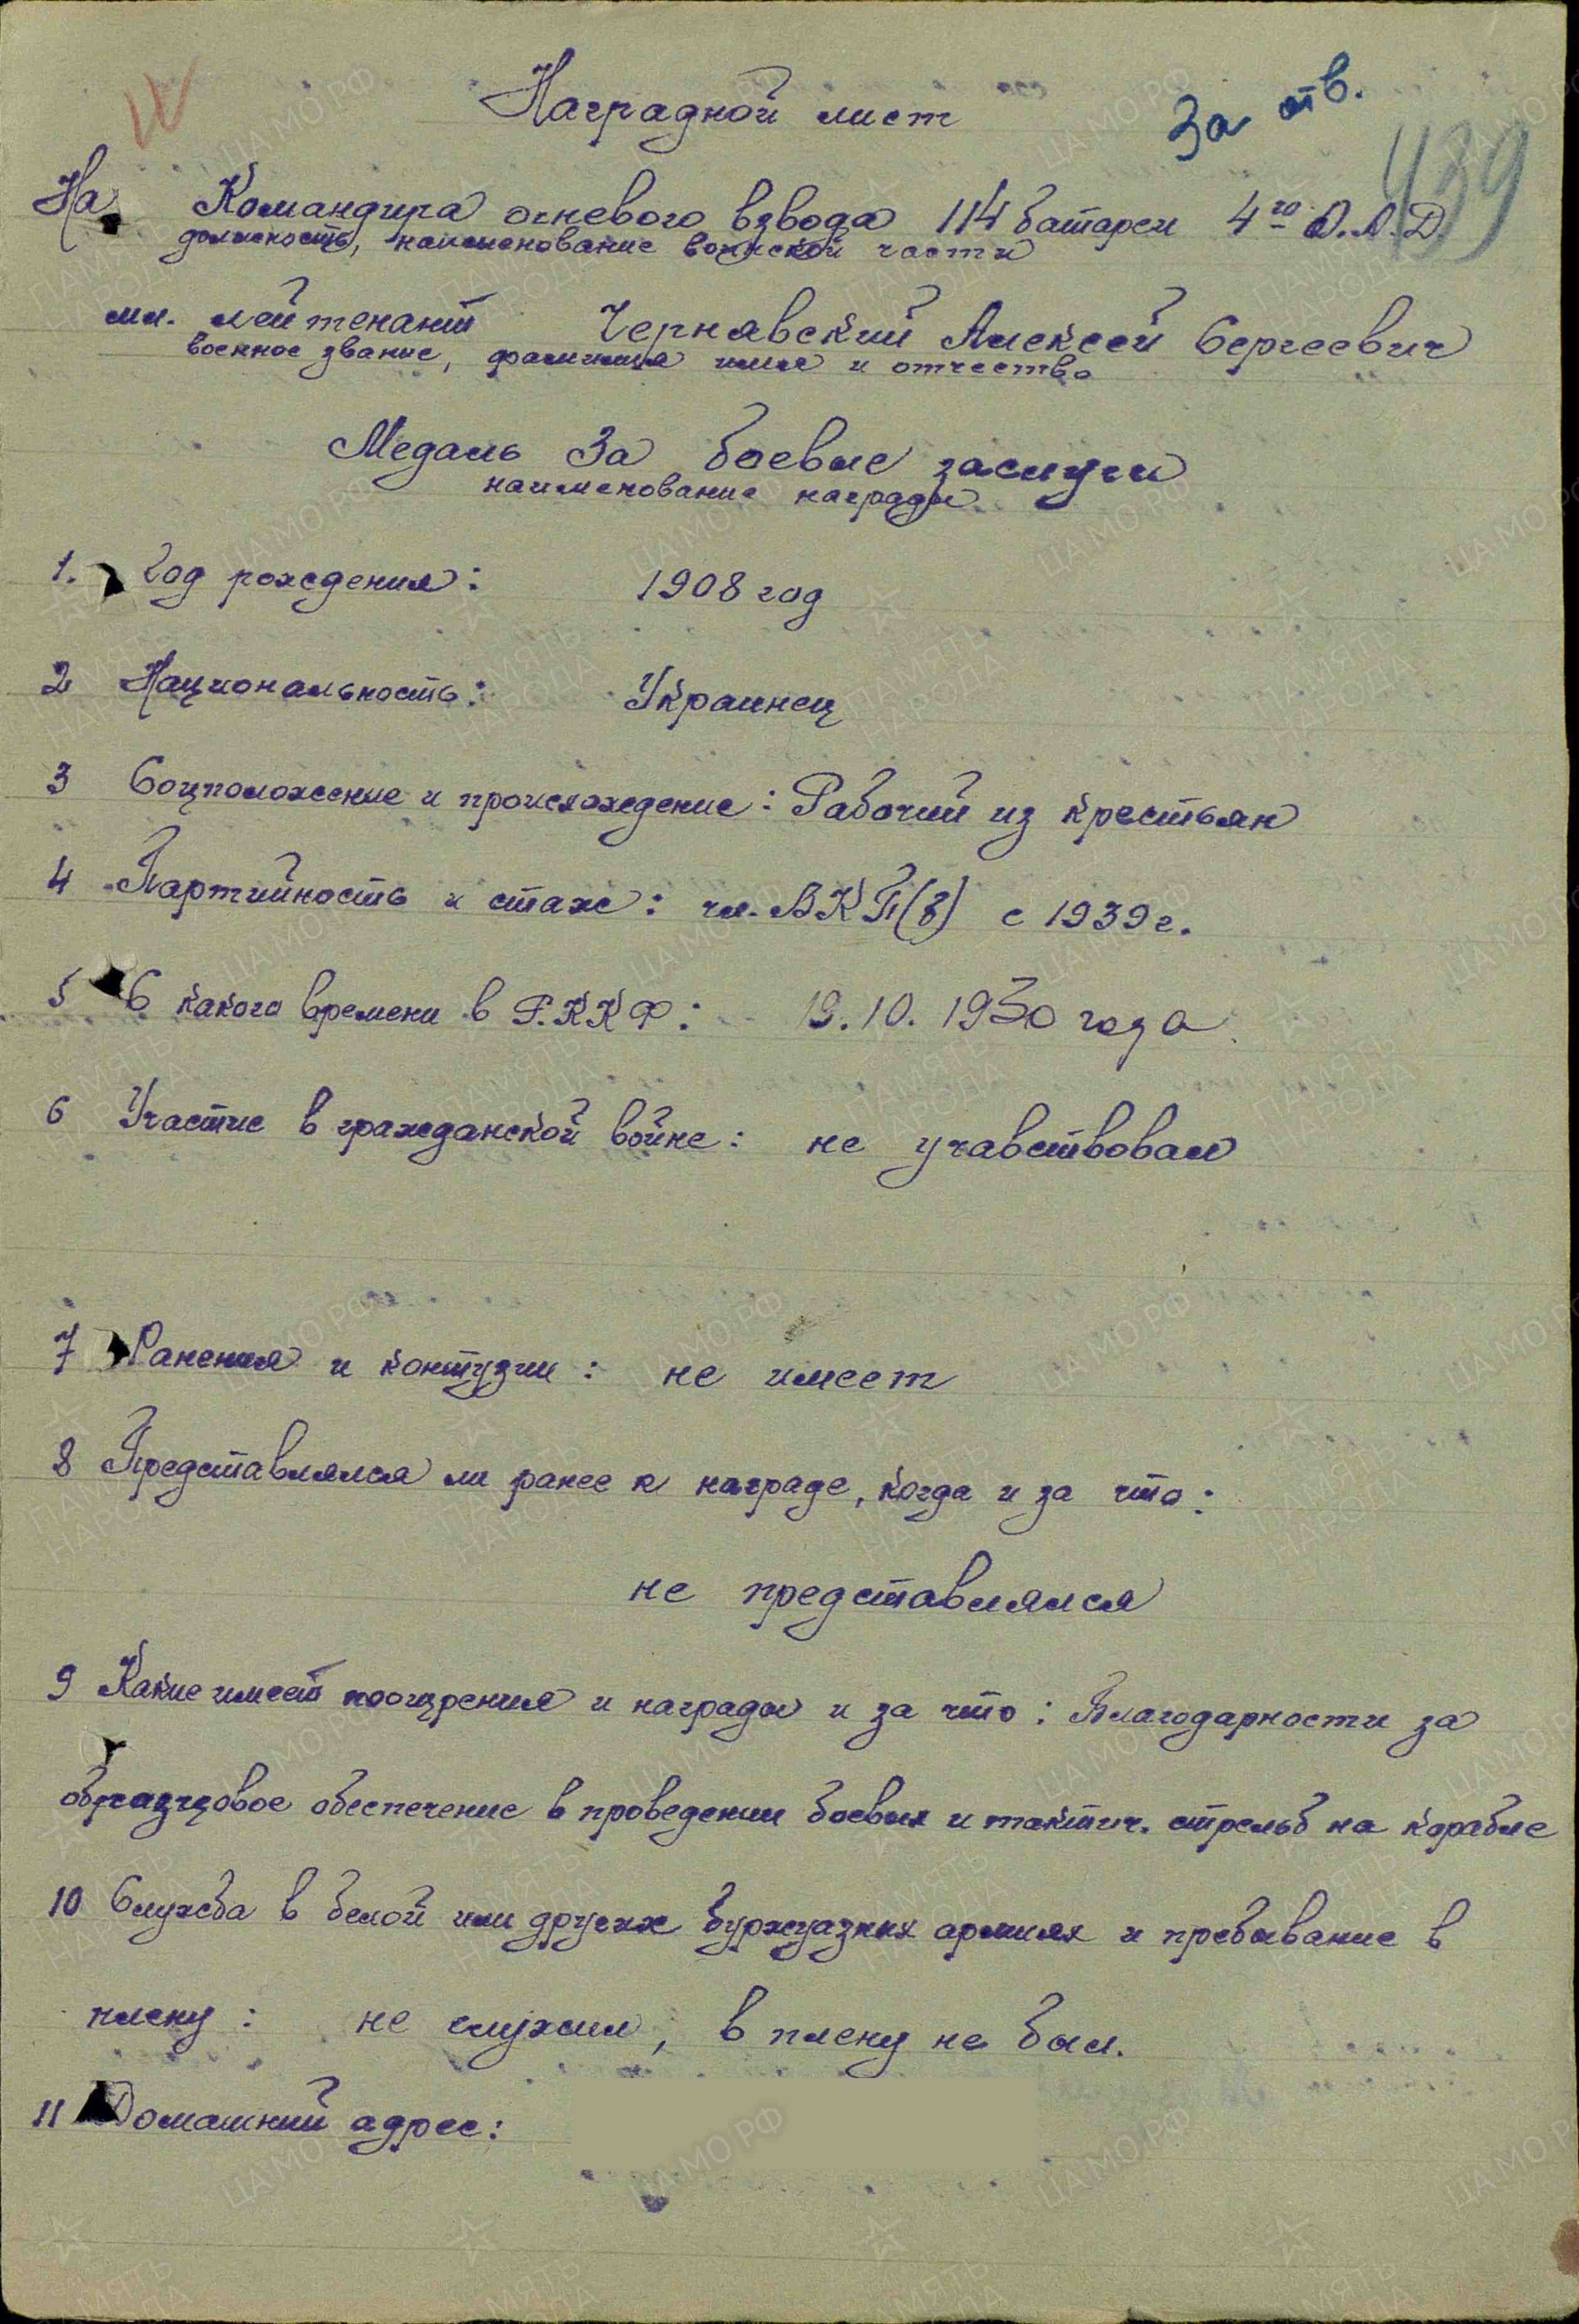 IV
Наградной лист
За отв.
439
На Командира огневого взвода 114 батареи 4го О.А.Д.
должность, наименование воинской части
мл. лейтенант Чернявский Алексей Сергеевич
военное звание, фамилия имя и отчество
Медаль За боевые заслуги
наименование награды
1. Год рождения: 1908 год
2 Национальность: Украинец
3 Соцположение и происхождение: Рабочий из крестьян
4 Партийность и стаж: чл. ВКП(б) с 1939 г.
5 С какого времени в Р.К.К.Ф: 19.10.1930 года
6 Участие в гражданской войне: не учавствовал
7 Ранения и контузии: не имеет
8 Представлялся ли ранее к награде, когда и за что:
не представлялся
9 Какие имеет поощрения и награды и за что: Благодарности за
образцовое обеспечение в проведении боевых и тактич. стрельб на корабле
10 Служба в белой или других буржуазных армиях и пребывание в
плену: не служил, в плену не был.
11 Домашний адрес: